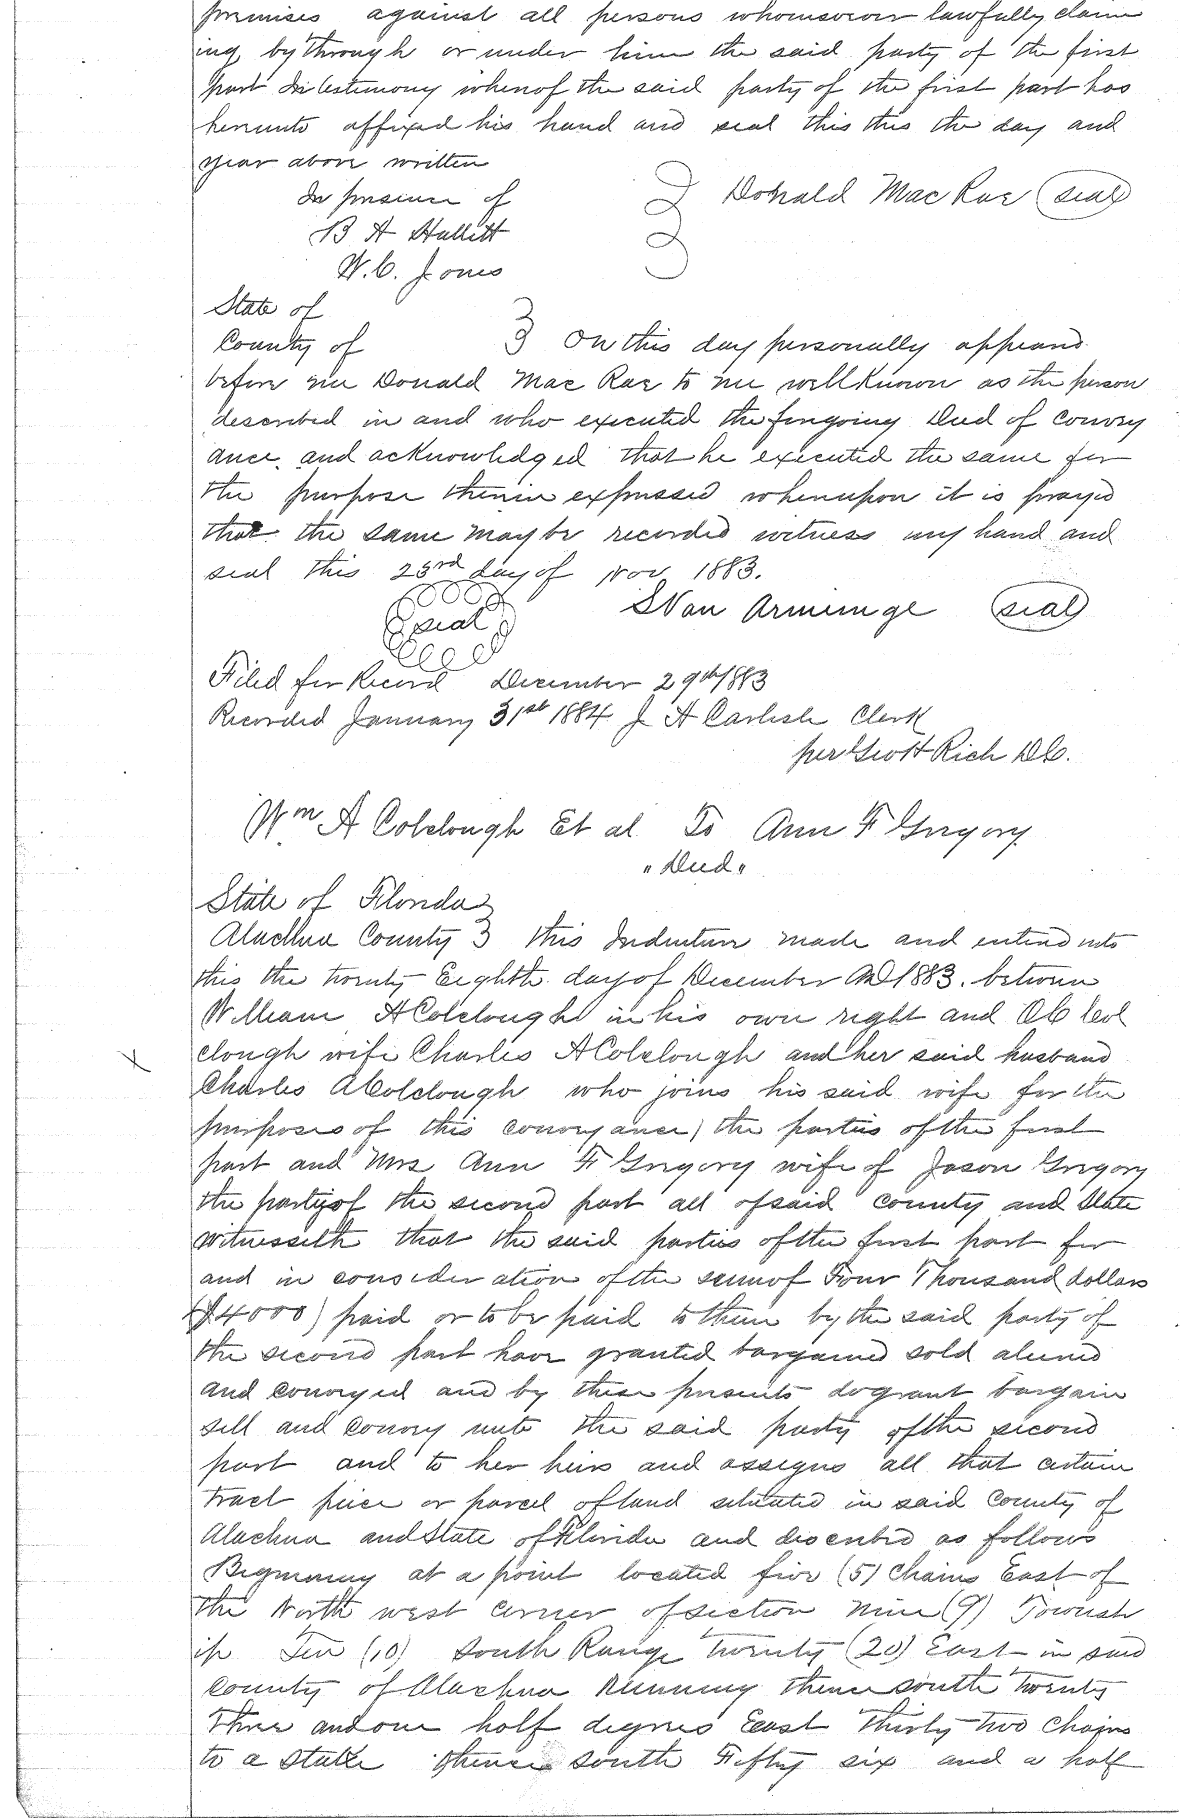 premises against all persons whomsoever lawfully claim
ing by through or under him the said party of the first
part In testimony whereof the said party of the first part has
hereunto affixed his hand and seal this this the day and
year above written
In presence of
Donald Mac Rae (seal)
B A Hallett
W. C. Jones
State of
County of } On this day personally appeared
before me Donald Mac Rae to me well known as the person
described in and who executed the foregoing Deed of convey
ance. and acknowledged that he executed the same for
the purpose therein expressed whereupon it is prayed
that the same may be recorded witness my hand and
seal this 23rd day of Nov 1883.
(seal) S Van (seal)
Filed for Record December 29th 1883
Recorded January 31st 1884 J A Carlisle Clerk
per Rich D C.
Wm A Colclough Et al To Ann F Gregory
"Deed"
State of Florida }
Alachua County } this Indenture made and entered into
this the twenty Eighth day of December AD 1883. between
William A Colclough in his own right and O C Col
clough wife Charles A Colclough and her said husband
Charles A Colclough who joins his said wife for the
purposes of this conveyance) the parties of the first
part and Mrs Ann F Gregory wife of Jason Gregory
the party of the second part all of said county and State
witnesseth that the said parties of the first part for
and in consideration of the sum of Four Thousand dollars
($4000) paid or to be paid to them by the said party of
the second part have granted bargained sold aliened
and conveyed and by these presents do grant bargain
sell and convey unto the said party of the second
part and to her heirs and assigns all that certain
tract piece or parcel of land situated in said County of
Alachua and State of Florida and described as follows
Beginning at a point located five (5) chains East of
the North west corner of section Nine (9) Townsh
ip Ten (10) South Range Twenty (20) East in said
County of Alachua Running thence south twenty
three and one half degrees East thirty two chains
to a stake thence south Fifty six and a half